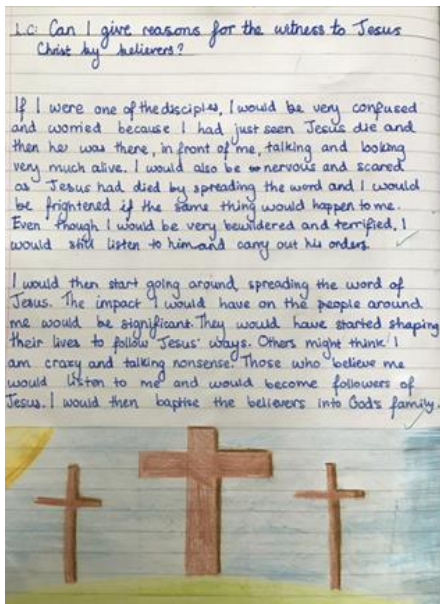 L.C: Can I give reasons for the witness to Jesus
Christ by believers?
If I were one of the disciples, I would be very confused
and worried because I had just seen Jesus die and
then he was there, in front of me, talking and looking
very much alive. I would also be nervous and scared
as Jesus had died by spreading the word and I would
be frightened if the same thing would happen to me.
Even though I would be very bewildered and terrified, I
would still listen to him and carry out his orders.
I would then start going around, spreading the word of
Jesus. The impact I would have on the people around
me would be significant. They would have started shaping
their lives to follow Jesus' ways. Others might think I
am crazy and talking nonsense. Those who believe me
would listen to me and would become followers of
Jesus. I would then baptise the believers into God's family.